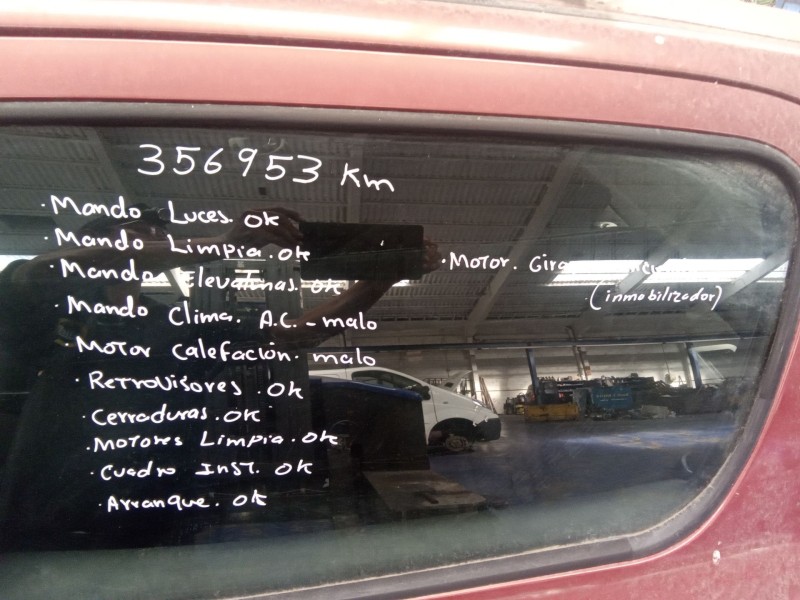 356953 Km
· Mando Luces. OK
· Mando Limpia. OK
· Mando Elevalunas. OK
· Mando Clima. A.C. - malo
· Motor Calefacion. malo
· Retrovisores. OK
· Cerraduras. OK
· Motores Limpia. OK
· Cuadro Inst. OK
· Arranque. OK
· Motor.
(inmobilizador)